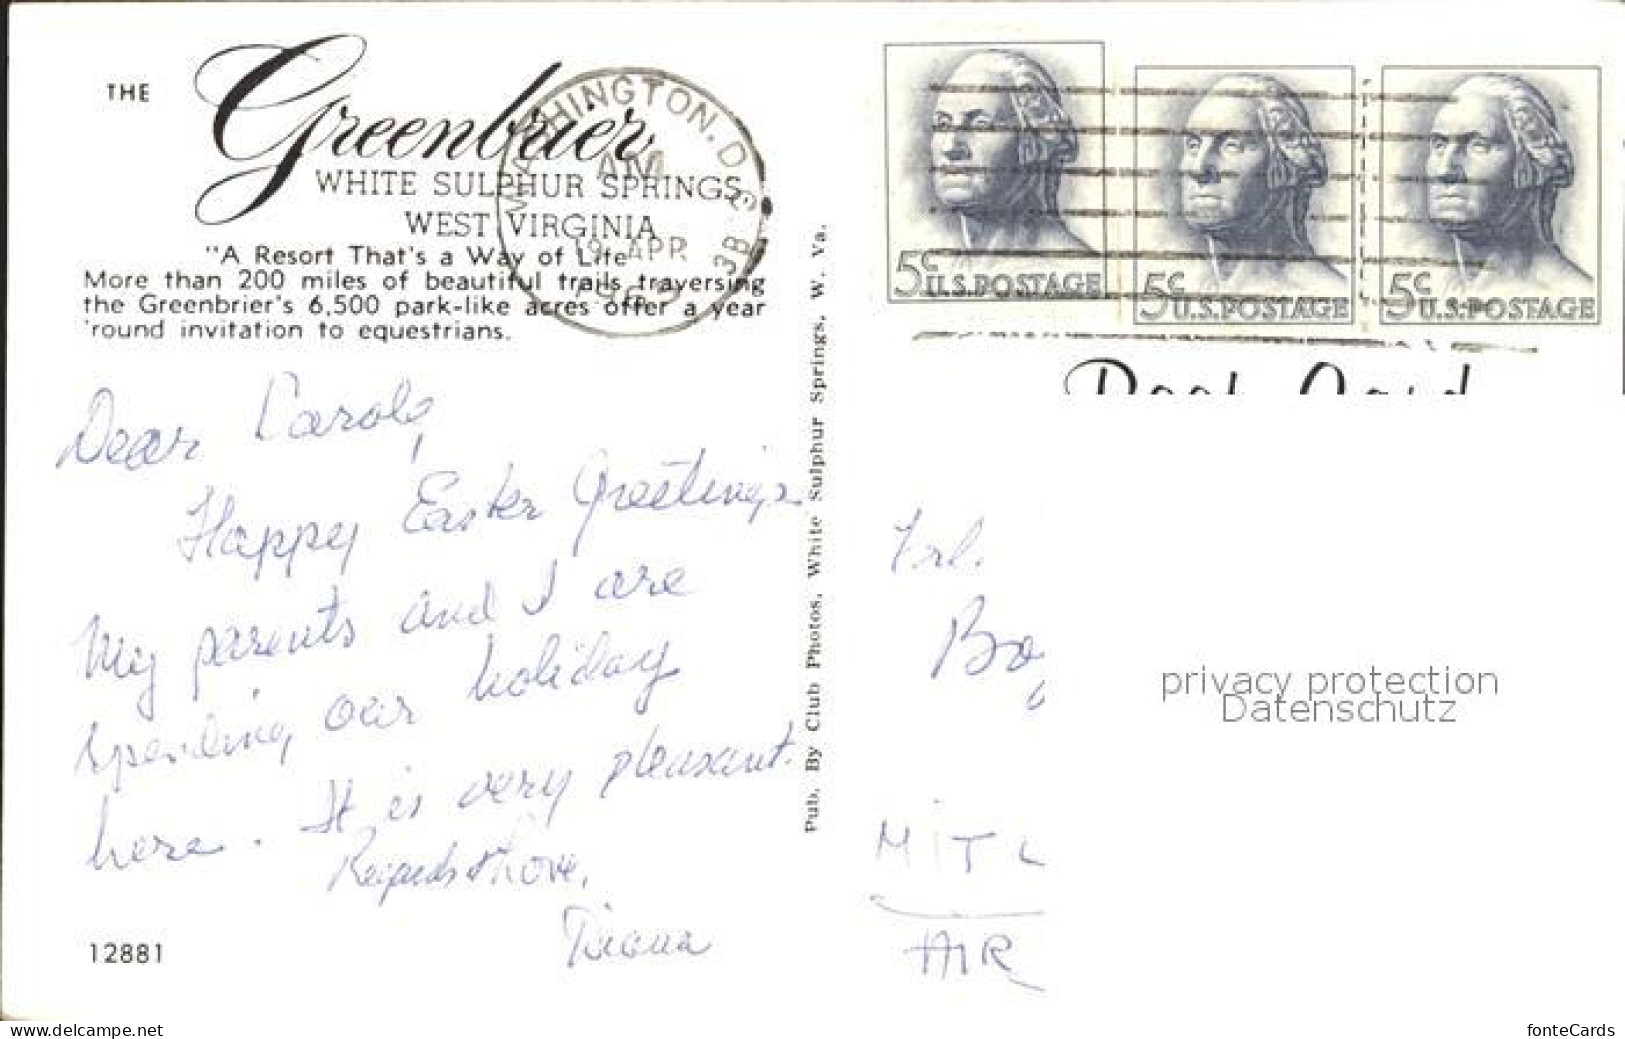 THE
Greenbrier
WHITE SULPHUR SPRINGS
WEST VIRGINIA
"A Resort That's a Way of Life"
More than 200 miles of beautiful trails traversing
the Greenbrier's 6,500 park-like acres offer a year
'round invitation to equestrians.
WASHINGTON, D.C.
AM
19 APR
3B
5c U.S. POSTAGE
5c U.S. POSTAGE
5c U.S. POSTAGE
Post Card
Dear Carole,
Happy Easter Greetings
My parents and I are
spending our holiday
here. It is very pleasant.
Regards & Love,
Diana
12881
Pub. By Club Photos, White Sulphur Springs, W. Va.
Frl.
MIT
AIR
privacy protection
Datenschutz
www.delcampe.net
fonteCards